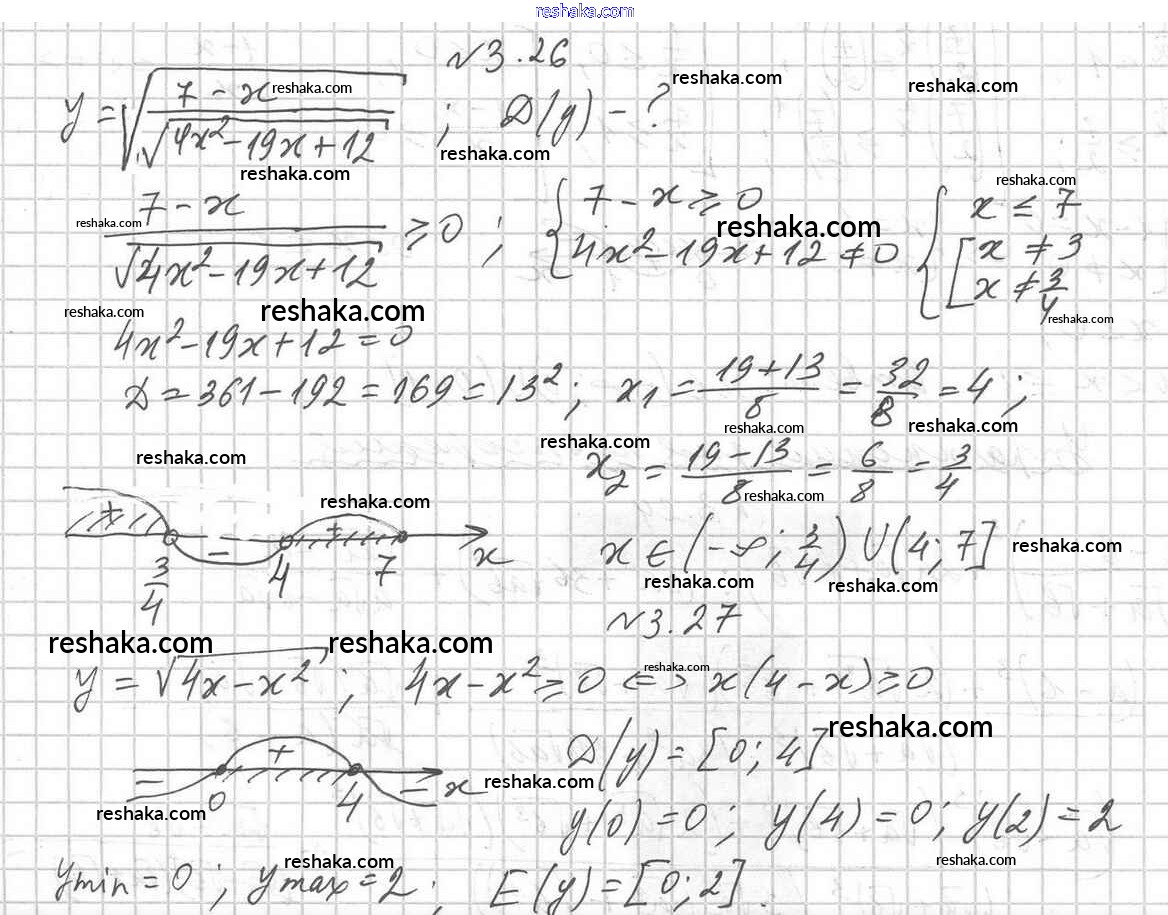 reshaka.com
N3.26
y = √((7 - x)/√(4x² - 19x + 12)) ; D(y) - ?
reshaka.com reshaka.com reshaka.com
reshaka.com reshaka.com
(7 - x)/√(4x² - 19x + 12) ≥ 0 ; { 7 - x ≥ 0 4x² - 19x + 12 ≠ 0 { x ≤ 7 [ x ≠ 3 x ≠ 3/4
reshaka.com reshaka.com reshaka.com
reshaka.com reshaka.com reshaka.com
4x² - 19x + 12 = 0
D = 361 - 192 = 169 = 13² ; x1 = (19 + 13)/8 = 32/8 = 4 ;
reshaka.com reshaka.com
reshaka.com reshaka.com
x2 = (19 - 13)/8 = 6/8 = 3/4
reshaka.com reshaka.com
+ - + x
3/4 4 7
x ∈ (-∞; 3/4) ∪ (4; 7]
reshaka.com
reshaka.com reshaka.com
N3.27
reshaka.com reshaka.com
y = √(4x - x²) ; 4x - x² ≥ 0 <=> x(4 - x) ≥ 0
reshaka.com
reshaka.com
- + - x
0 4
D(y) = [0; 4]
reshaka.com
reshaka.com
y(0) = 0 ; y(4) = 0 ; y(2) = 2
reshaka.com reshaka.com
ymin = 0 ; ymax = 2 ; E(y) = [0; 2].